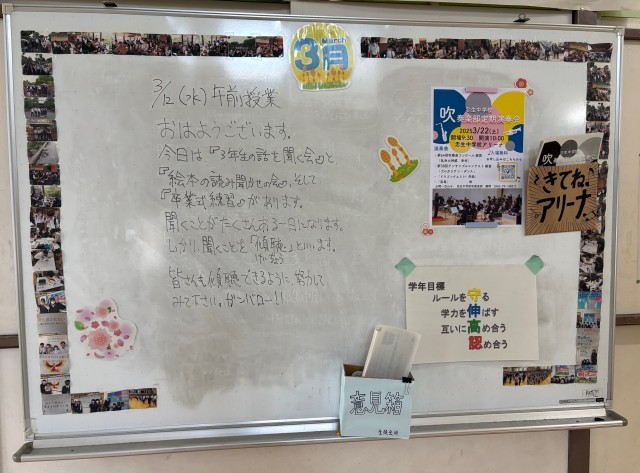 March
3月
3/12(水) 午前授業
おはようございます。
今日は『3年生の話を聞く会』と、
『絵本の読み聞かせの会』、そして
『卒業式練習』があります。
聞くことがたくさんある一日になります。
しっかり聞くことを「傾聴」といいます。
けいちょう
皆さんも傾聴できるように、努力して
みて下さい。ガンバロー!!
忠生中学校
吹奏楽部定期演奏会
2025 3/22(土)
開場9:30 開演10:00
忠生中学校アリーナ
入場無料
吹
きてね。
アリーナ
学年目標
ルールを守る
学力を伸ばす
互いに高め合う
認め合う
意見箱
生徒会